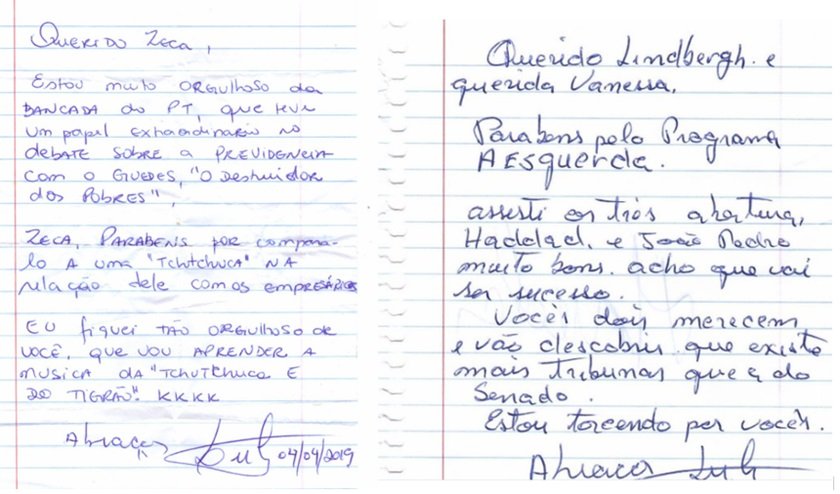 Querido Zeca,
Estou muito orgulhoso da
bancada do PT, que teve
um papel extraordinario no
debate sobre a previdencia
com o Guedes, "o destruidor
dos pobres",
Zeca, parabens por compara-
lo a uma "tchutchuca" na
relação dele com os empresários
Eu fiquei tão orgulhoso de
você, que vou aprender a
musica da "tchutchuca e
do tigrão". kkkk
Abraços Lula 04/04/2019
Querido Lindbergh. e
querida Vanessa.
Parabens pelo Programa
A Esquerda.
assisti os três abertura,
Haddad, e João Pedro
muito bons. acho que vai
ser sucesso.
Vocês dois merecem
e vão descobrir que existe
mais tribunas que a do
Senado.
Estou torcendo por vocês.
Abraços Lula